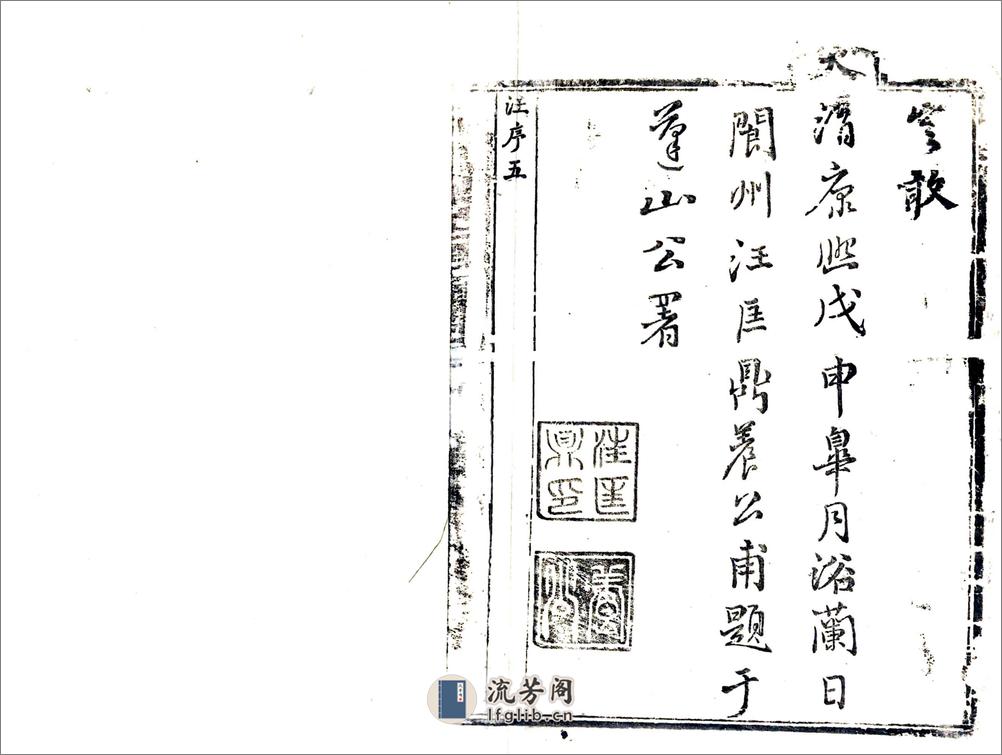 敢
大清康熙戊申臯月浴蘭日
閬州汪匡鼎養公甫題于
蓬山公署
汪匡鼎印
汪序五
流芳阁
lfglib.cn